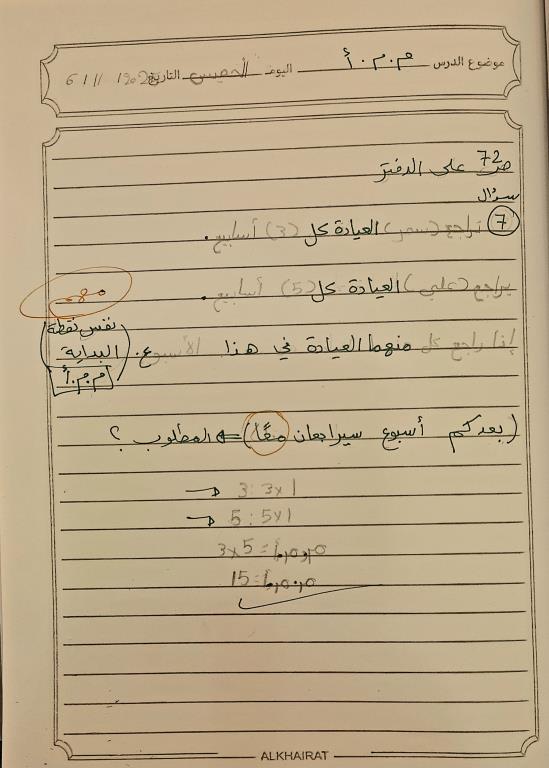 موضوع الدرس م.م.أ اليوم الخميس التاريخ 6 / 11 / 202
ص 72 على الدفتر
سؤال
7 تراجع (سمر) العيادة كل (3) أسابيع.
يراجع (علي) العيادة كل (5) أسابيع.
إذا راجع كل منهما العيادة في هذا الأسبوع.
نفس نقطة
البداية
م.م.أ
(بعد كم أسبوع سيراجعان معًا) ⇐ المطلوب ؟
3 : 3x1
5 : 5x1
3x5 = م.م.أ
15 = م.م.أ
ALKHAIRAT